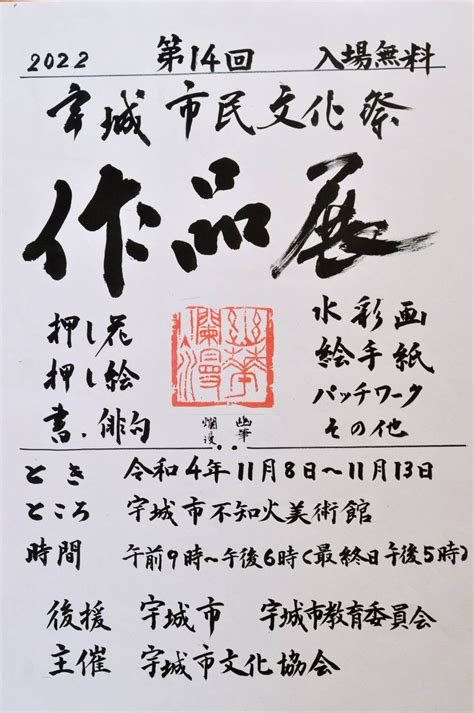 2022 第14回 入場無料
宇城市民文化祭
作品展
押し花
押し絵
書・俳句
水彩画
絵手紙
パッチワーク
その他
とき 令和4年11月8日~11月13日
ところ 宇城市不知火美術館
時間 午前9時~午後6時(最終日午後5時)
後援 宇城市 宇城市教育委員会
主催 宇城市文化協会